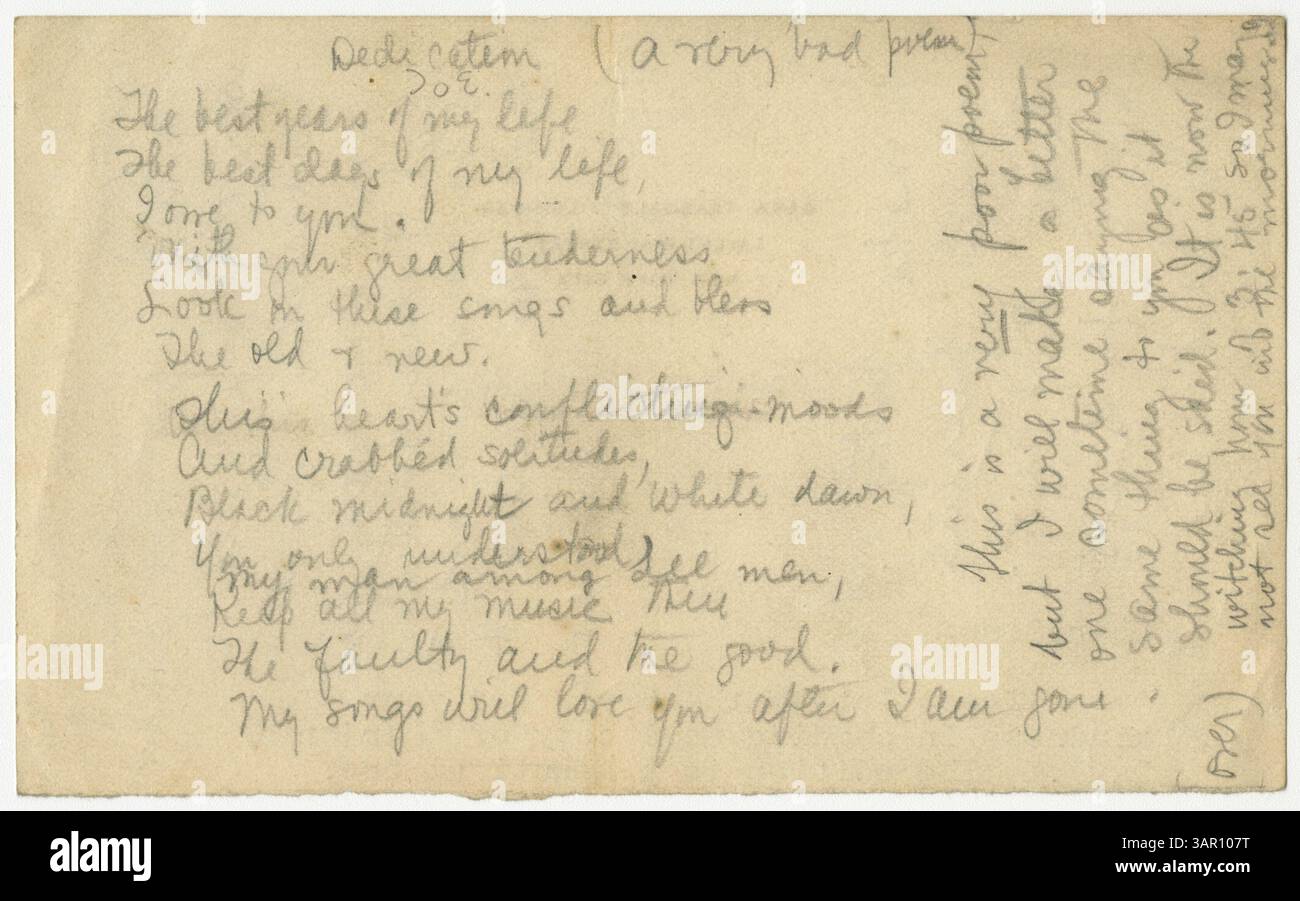 Dedication (a very bad poem)
To E.
The best years of my life
The best days of my life,
I owe to you.
With your great tenderness
Look on these songs and bless
The old + new.
This heart's conflicting moods
And crabbéd solitudes,
Black midnight and white dawn,
You only understood
My man among all men,
Keep all my music then
The faulty and the good.
My songs will love you after I am gone.
This is a very poor poem
but I will make a better
one sometime saying the
same thing to you as it
should be said. It is now the
witching hour 3:45 so I may
not see you in the morning
(over)
alamy
Image ID: 3AR107T
www.alamy.com